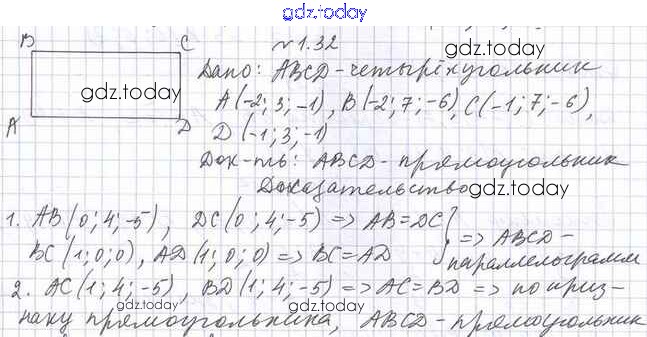 gdz.today
B C №1.32 gdz.today
Дано: ABCD - четырёхугольник
gdz.today A(-2; 3; -1), B(-2; 7; -6), C(-1; 7; -6),
A D D(-1; 3; -1)
Док-ть: ABCD - прямоугольник
Доказательство gdz.today
1. AB(0; 4; -5), DC(0; 4; -5) => AB = DC } => ABCD -
BC(1; 0; 0), AD(1; 0; 0) => BC = AD параллелограмм
2. AC(1; 4; -5), BD(1; 4; -5) => AC = BD => по приз-
gdz.today
наку прямоугольника, ABCD - прямоугольник